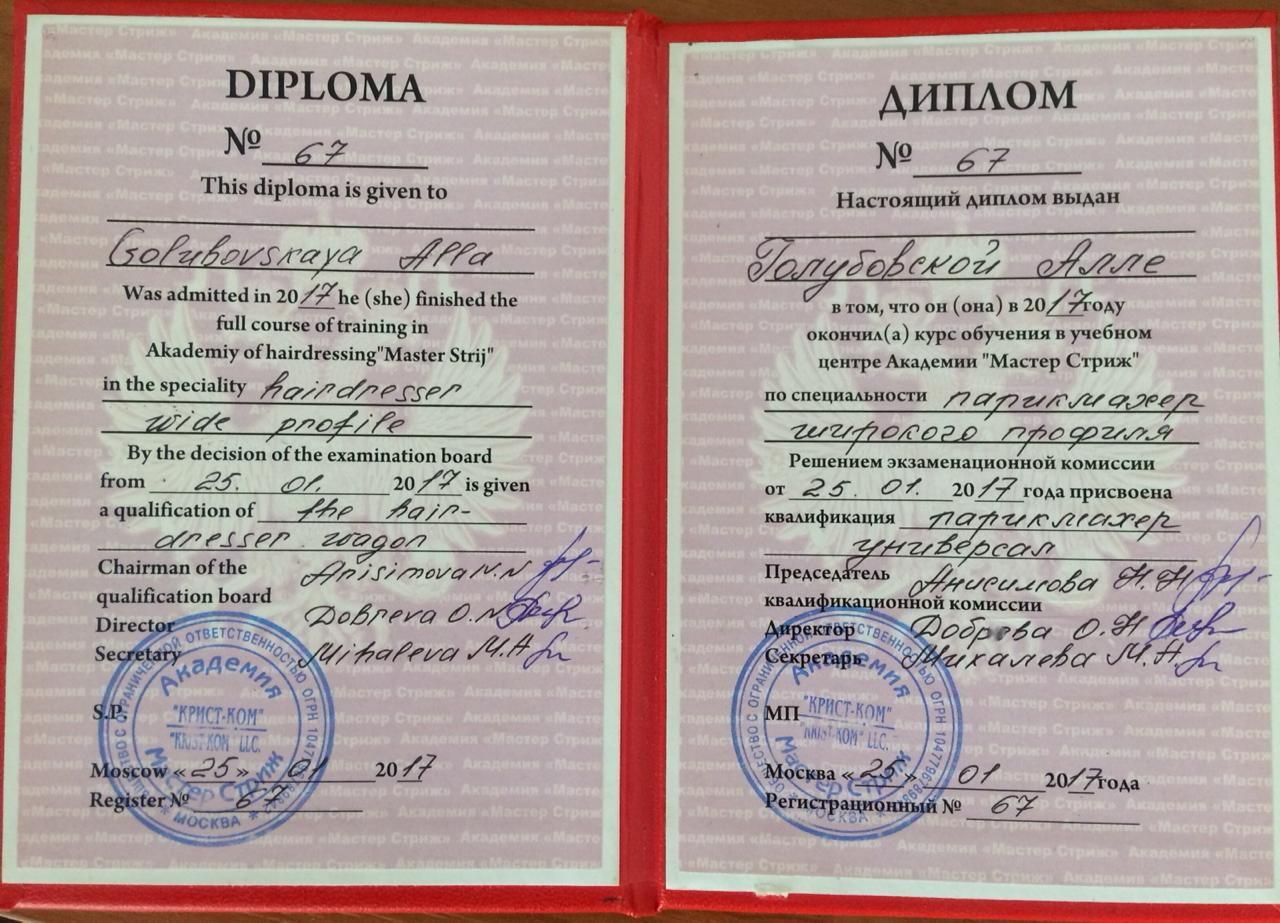 DIPLOMA
№ 67
This diploma is given to
Golubovskaya Alla
Was admitted in 2017 he (she) finished the
full course of training in
Akademiy of hairdressing"Master Strij"
in the speciality hairdresser
wide profile
By the decision of the examination board
from 25. 01. 2017 is given
a qualification of the hair-
dresser wagon
Chairman of the Anisimova N.N
qualification board
Director Dobreva O.N
Secretary Mihaleva M.A
S.P.
Академия
"КРИСТ-КОМ"
"KRIST-KOM" LLC.
Мастер Стриж
МОСКВА
Moscow «25» 01 2017
Register № 67
ДИПЛОМ
№ 67
Настоящий диплом выдан
Голубовской Алле
в том, что он (она) в 2017году
окончил(а) курс обучения в учебном
центре Академии "Мастер Стриж"
по специальности парикмахер
широкого профиля
Решением экзаменационной комиссии
от 25. 01. 2017 года присвоена
квалификация парикмахер
универсал
Председатель Анисимова Н.Н
квалификационной комиссии
Директор Добрева О.Н
Секретарь Михалева М.А.
МП
Академия
"КРИСТ-КОМ"
"KRIST-KOM" LLC.
Мастер Стриж
МОСКВА
Москва «25» 01 2017года
Регистрационный № 67